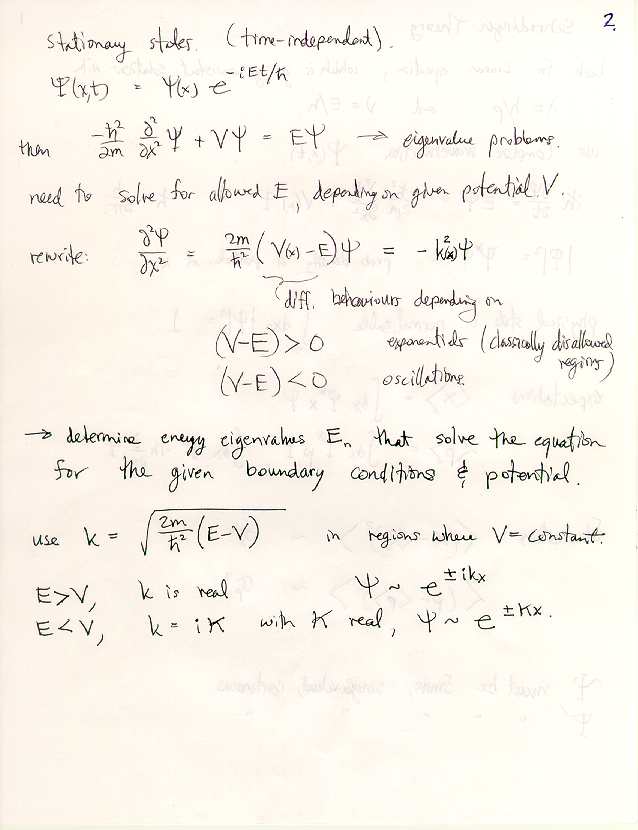 2.
Stationary states. (time-independent).
Ψ(x,t) = ψ(x) e^{-iEt/ħ}
then -ħ²/2m ∂²/∂x² ψ + Vψ = Eψ → eigenvalue problems.
need to solve for allowed E, depending on given potential V.
rewrite: ∂²ψ/∂x² = 2m/ħ² (V(x) - E)ψ = - k²(x)ψ
diff. behaviours depending on
(V-E) > 0 exponentials (classically disallowed
regions)
(V-E) < 0 oscillations.
→ determine energy eigenvalues Eₙ that solve the equation
for the given boundary conditions & potential.
use k = √(2m/ħ² (E-V)) in regions where V = constant.
E>V, k is real ψ ~ e^{±ikx}
E<V, k = iK with K real, ψ ~ e^{±Kx}.